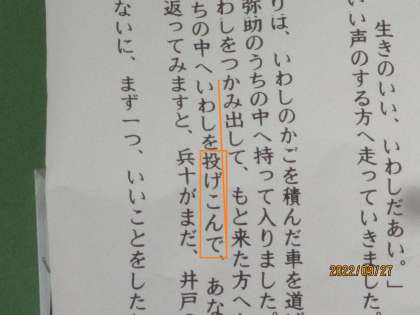 生きのいい、いわしだあい。」
いい声のする方へ走っていきました。
りは、いわしのかごを積んだ車を道
弥助のうちの中へ持って入りました。
わしをつかみ出して、もと来た方へ
ちの中へいわしを投げこんで、あな
返ってみますと、兵十がまだ、井戸の
ないに、まず一つ、いいことをした
2022/09/27